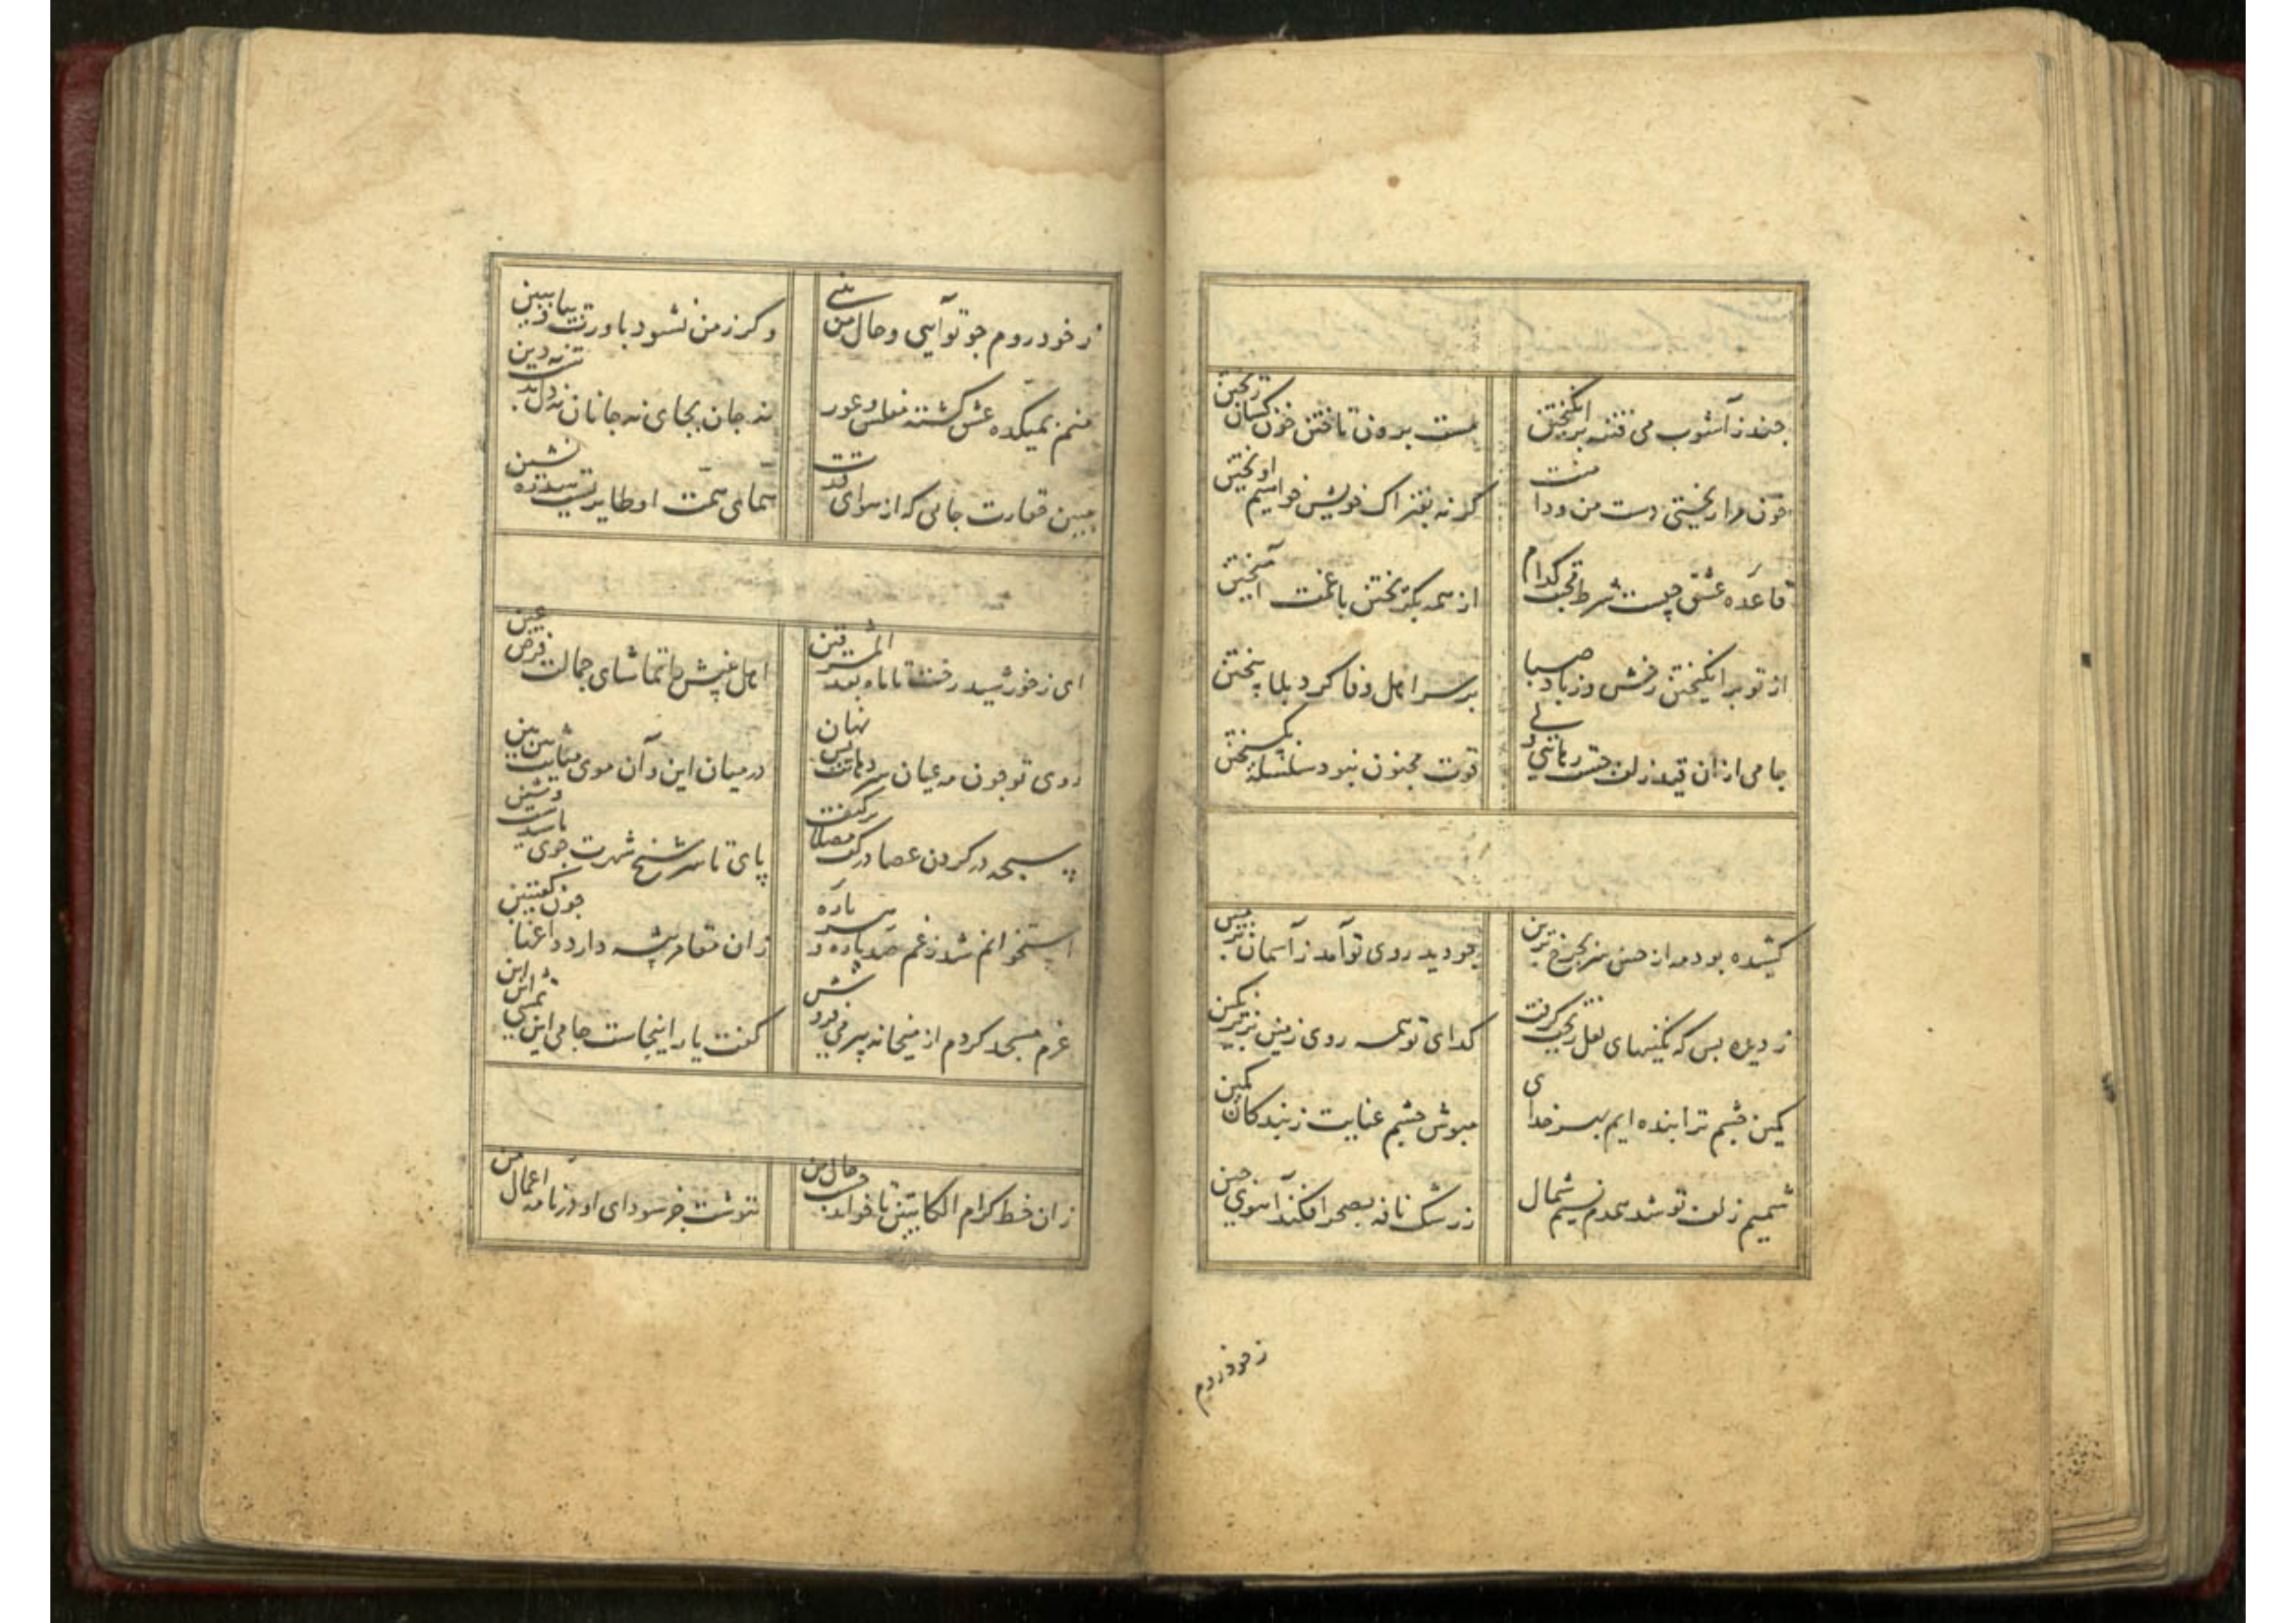 چند ز آشوب می فتنه برانگیختن
مست برون تاختن خون کسان ریختن
خون مرا ریختی دست من و دامنت
گر نه بفتراک خویش خواهیم اویختن
قاعده عشق چیست شرط محبت کدام
از همه بگریختن با غمت آمیختن
از تو برانگیختن رخش و ز باد صبا
بر سر اهل وفا کرد بلا بیختن
جامی از آن قید زلف جست رهایی ولی
قوت مجنون نبود سلسله بگسیختن
کشیده بود مه از حسن سر بچرخ برین
چو دید روی تو آمد ز آسمان بزمین
ز دیده بس که نگینهای لعل ریخت گرفت
گدای تو همه روی زمین بزیر نگین
کمین چشم ترا بنده ایم بهر خدای
مپوش چشم عنایت ز بندگان کمین
شمیم زلف تو شد همدم نسیم شمال
ز رشک نافه بصحرا فکند آهوی چین
ز خود روم
ز خود روم چو تو آیی و حال من بینی
وگر ز من نشود باورت بیا و ببین
منم بمیکده عشق گشته مفلس و عور
نه جان بجای نه جانان نه دل بدست نه دین
مبین حقارت جامی که از هوای قدت
همای همت او طایریست سدره نشین
ای ز خورشید رخت تا ماه بعد المشرقین
اهل بینش را تماشای جمالت فرض عین
روی تو چون مه عیان سر دهانت بس نهان
در میان این و آن موی میانت بین بین
سبحه در گردن عصا در کف مصلا بر کتف
پای تا سر شیخ شهرت جوی ما شیدست و شین
استخوانم شد ز غم صد پاره و هر پاره
زان مقامر پیشه دارد داغها چون کعبتین
عزم مسجد کردم از میخانه پیر می فروش
گفت یار اینجاست جامی این تمشی این این
زان خط کرام الکاتبین تا خواند حسب حال من
ننوشت جز سودای او در نامه اعمال من